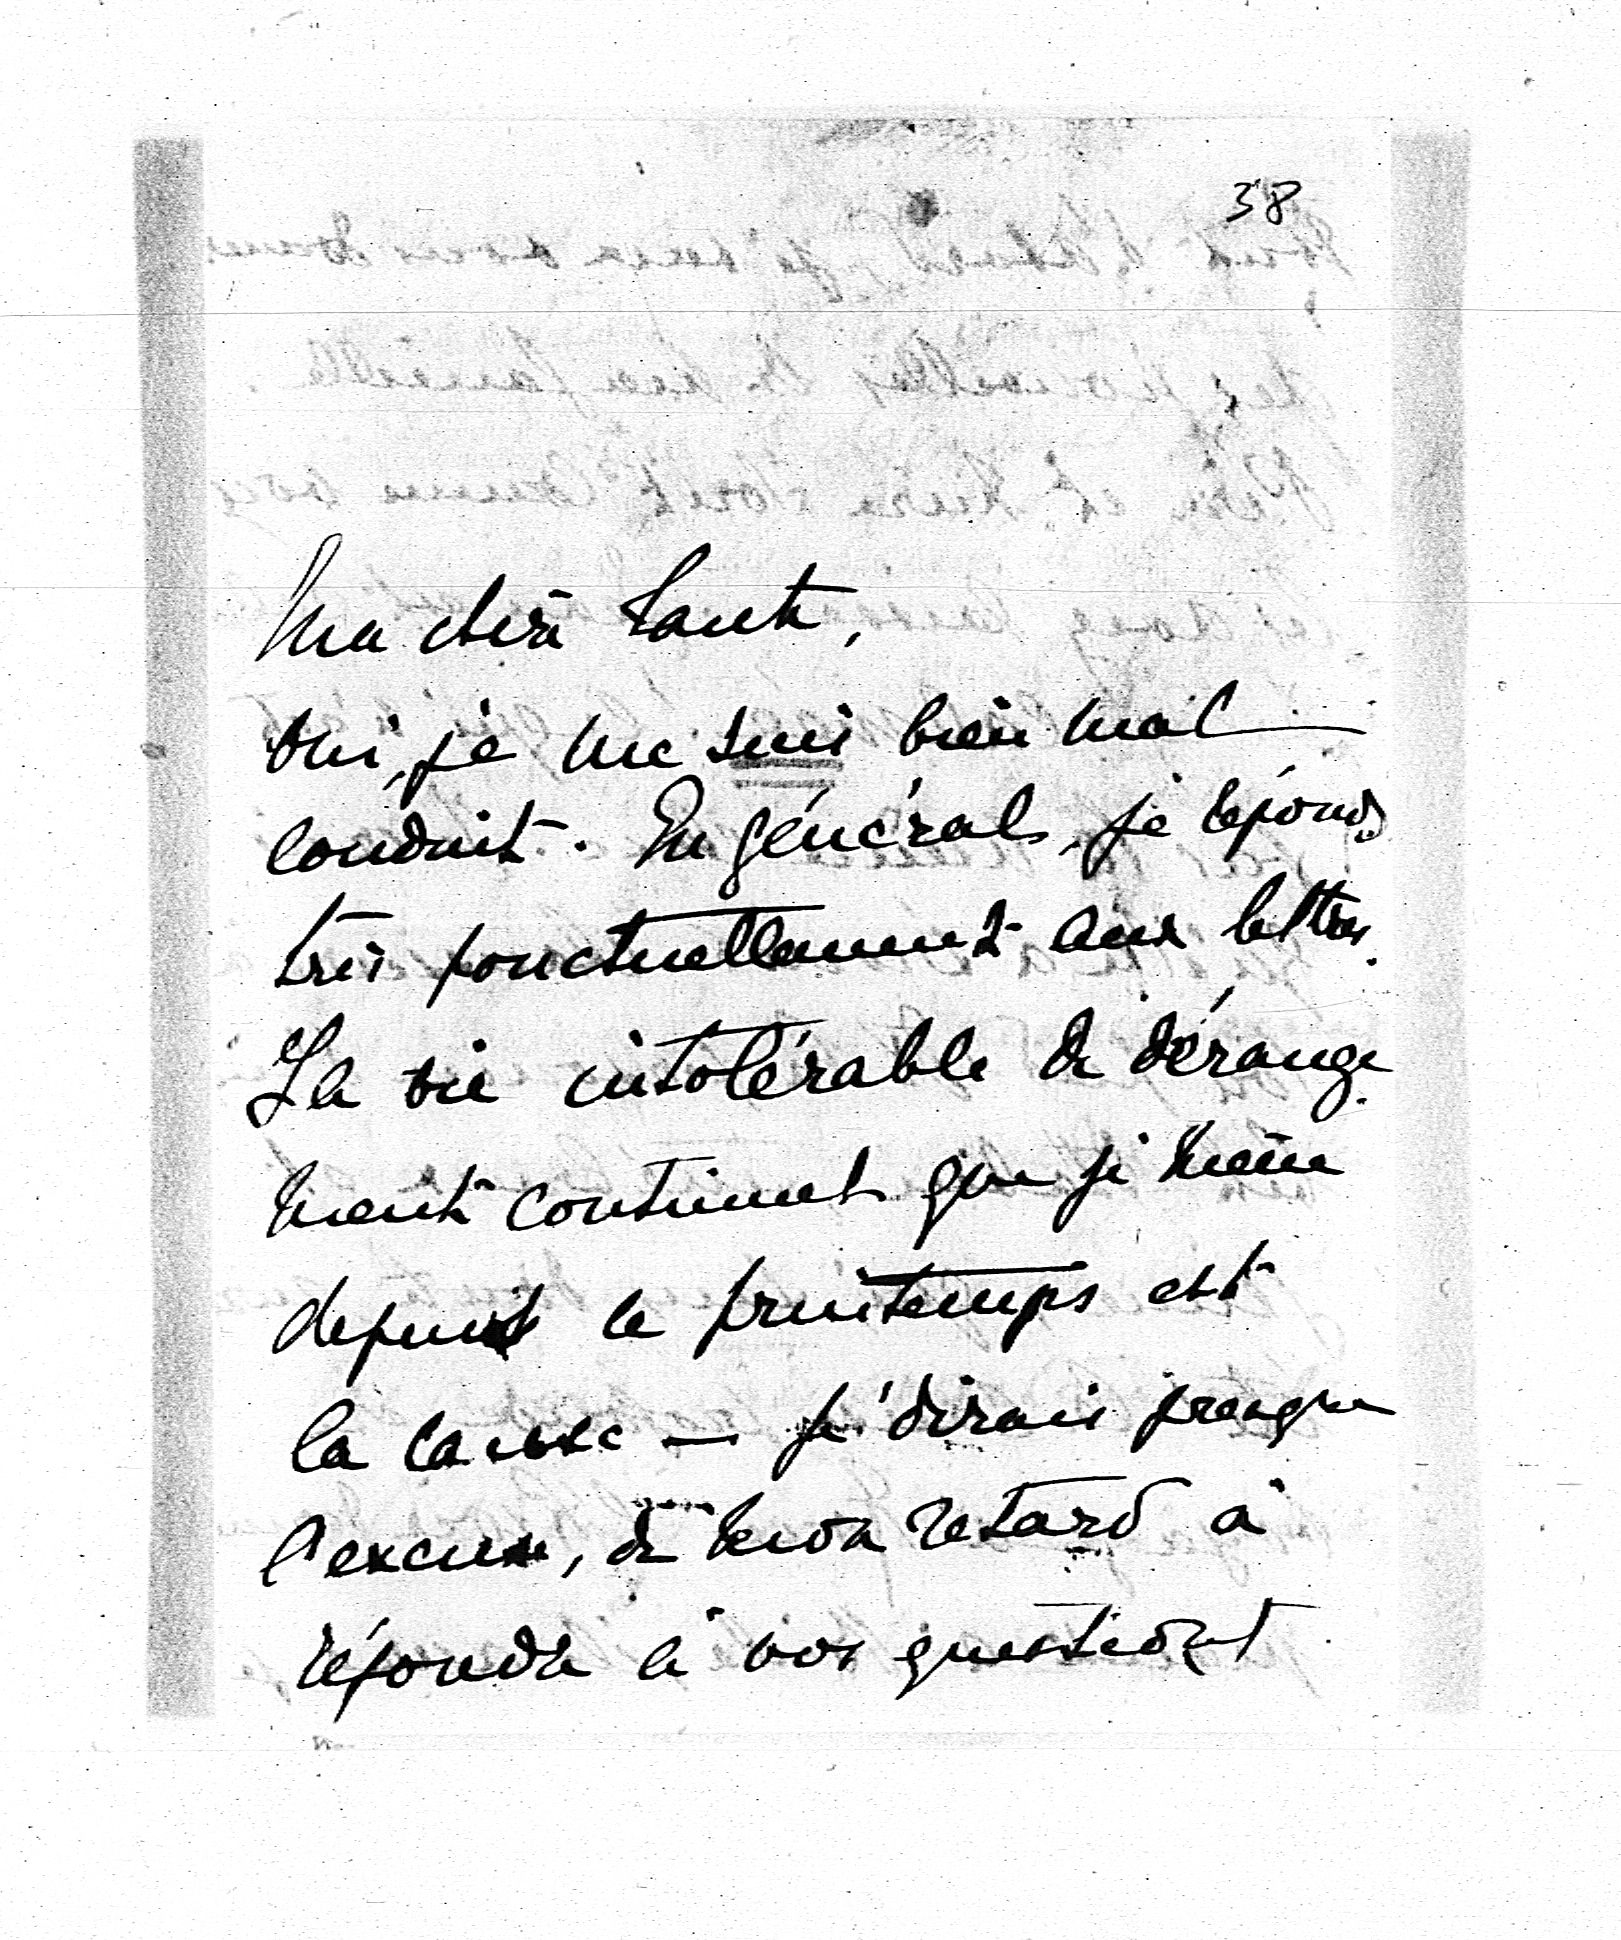 38
Ma chère tante,
oui, je me suis bien mal
conduit. En général, je réponds
très ponctuellement aux lettres.
La vie intolérable de dérange-
ments continuels que je mène
depuis le printemps est
la cause — je dirais presque
l'excuse, de mon retard à
répondre à vos questions